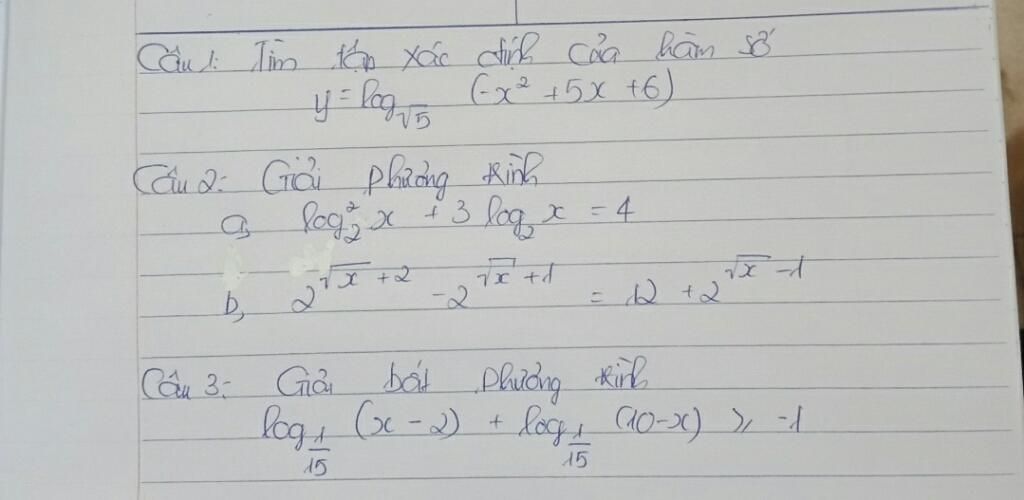 Câu 1: Tìm tập xác định của hàm số
y = log_{√5} (-x² + 5x + 6)
Câu 2: Giải phương trình
a, log₂² x + 3 log₂ x = 4
b, 2^{√x + 2} - 2^{√x + 1} = 12 + 2^{√x - 1}
Câu 3: Giải bất phương trình
log_{1/15} (x - 2) + log_{1/15} (10 - x) ≥ -1